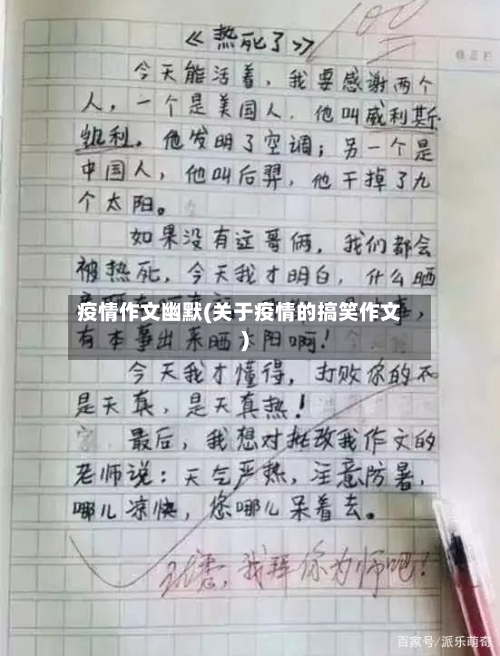 100
《热死了》
今天能活着，我要感谢两个
人，一个是美国人，他叫威利斯·
凯利，他发明了空调；另一个是
中国人，他叫后羿，他干掉了九
个太阳。
如果没有这哥俩，我们都会
被热死，今天我才明白，什么晒
疫情作文幽默(关于疫情的搞笑作文
)
有本事出来晒太阳啊！
今天我才懂得，打败你的不
是天真，是天真热！
最后，我想对批改我作文的
老师说：天气严热，注意防暑，
哪儿凉快，您哪儿呆着去。
我拜你为师吧！
百家号/派乐萌奇